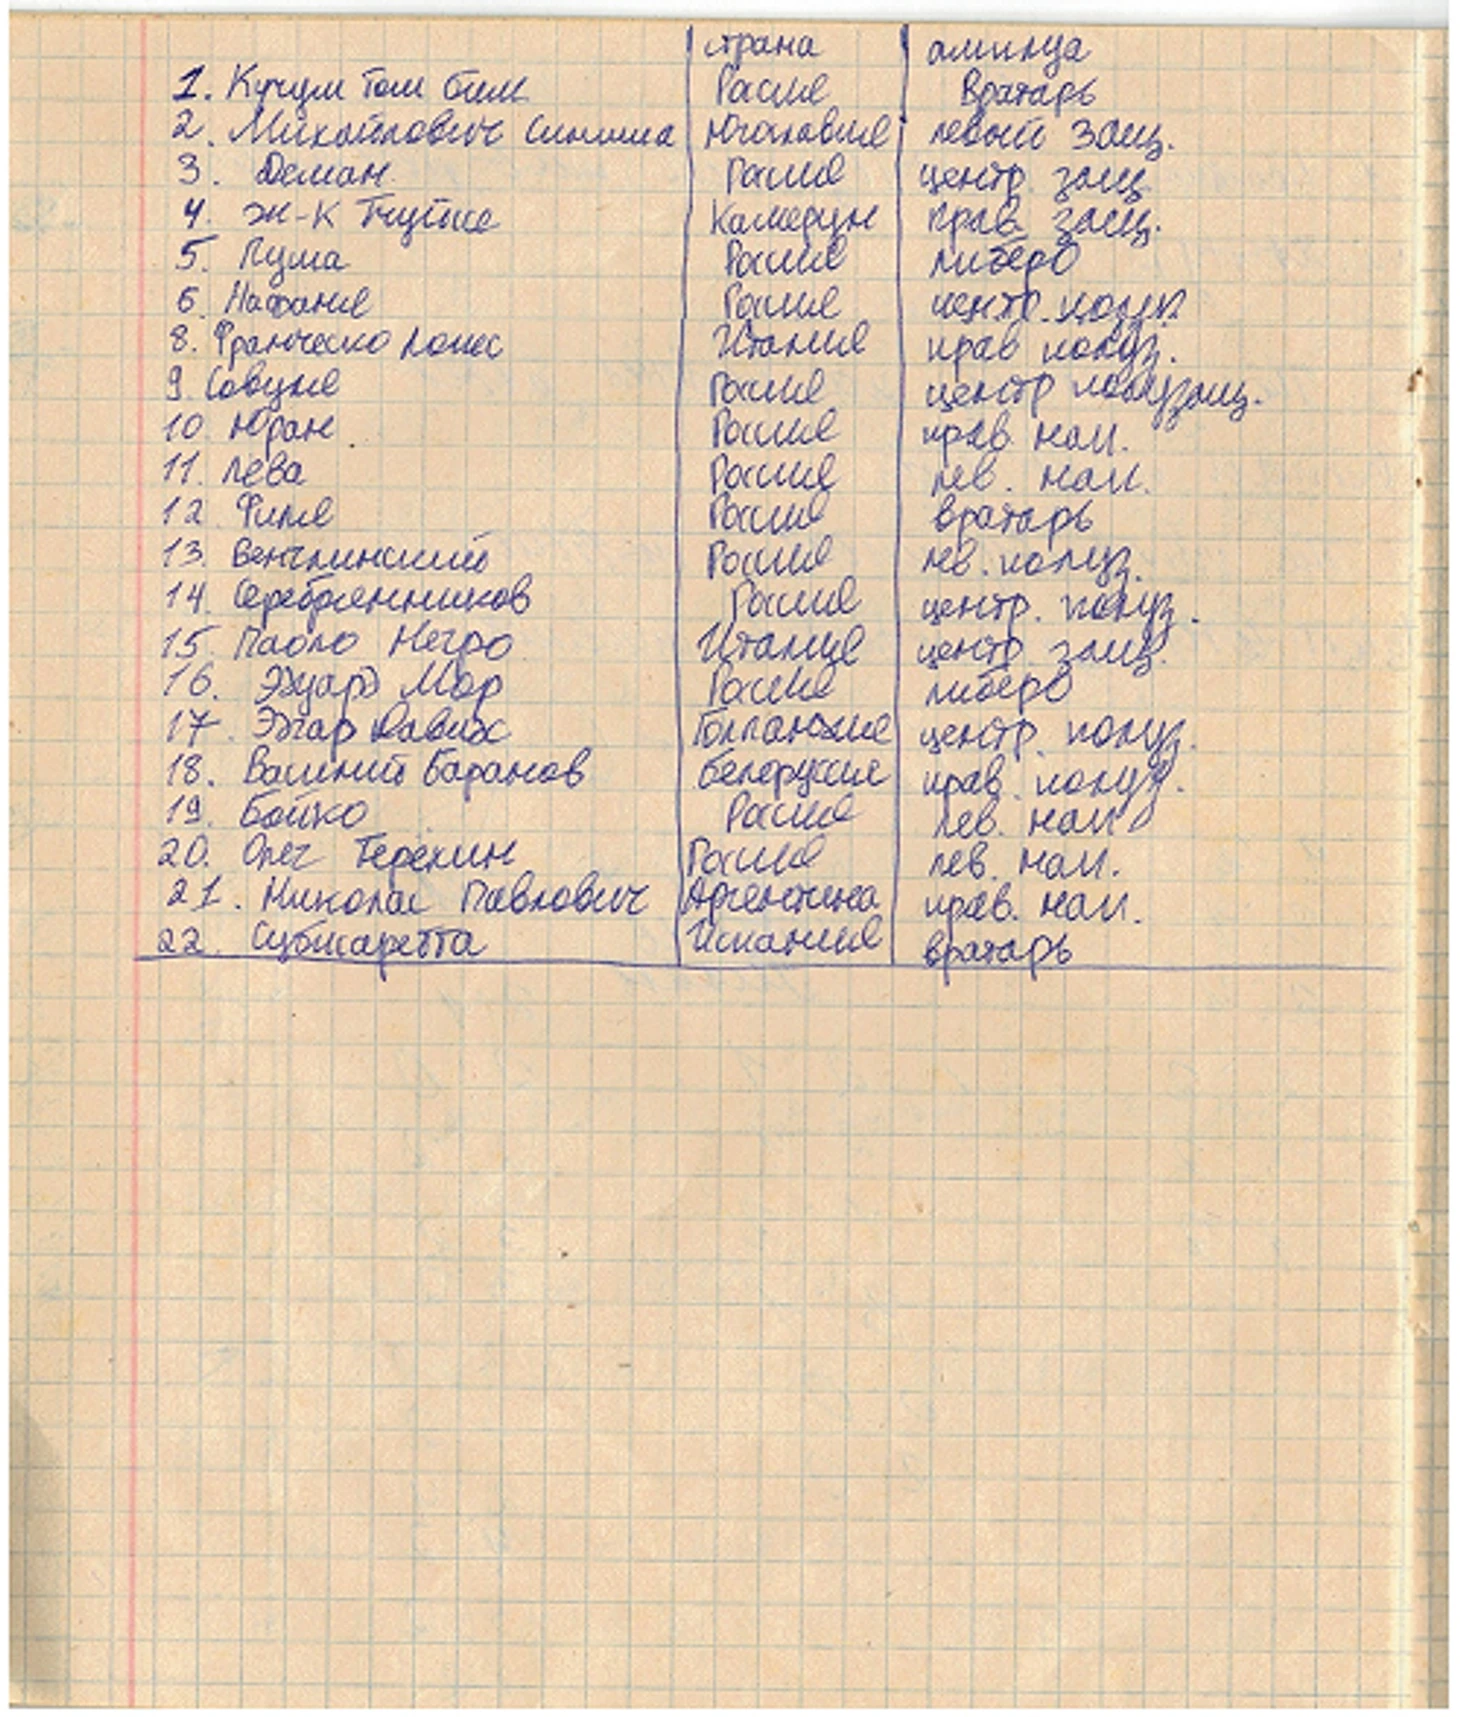 страна амплуа
1. Кучум Том Бим Россия Вратарь
2. Михайлович Синиша Югославия левый защ.
3. Деман Россия центр. защ.
4. Ж-К Тчутше Камерун прав. защ.
5. Пуша Россия либеро
6. Нафаня Россия центр. полуз.
8. Франческо Лопес Италия прав полуз.
9. Совуня Россия центр полузащ.
10. Юран. Россия прав. нап.
11. Лева Россия лев. нап.
12. Филя Россия вратарь
13. Венглинский Россия лев. полуз.
14. Серебренников Россия центр. полуз.
15. Паоло Негро Италия центр. защ.
16. Эдуард Мор Россия либеро
17. Эдгар Давидс Голландия центр. полуз.
18. Василий Баранов Белоруссия прав. полуз.
19. Бойко Россия лев. нап
20. Олег Терехин Россия лев. нап.
21. Николас Павлович Аргентина прав. нап.
22. Субисаретта Испания вратарь